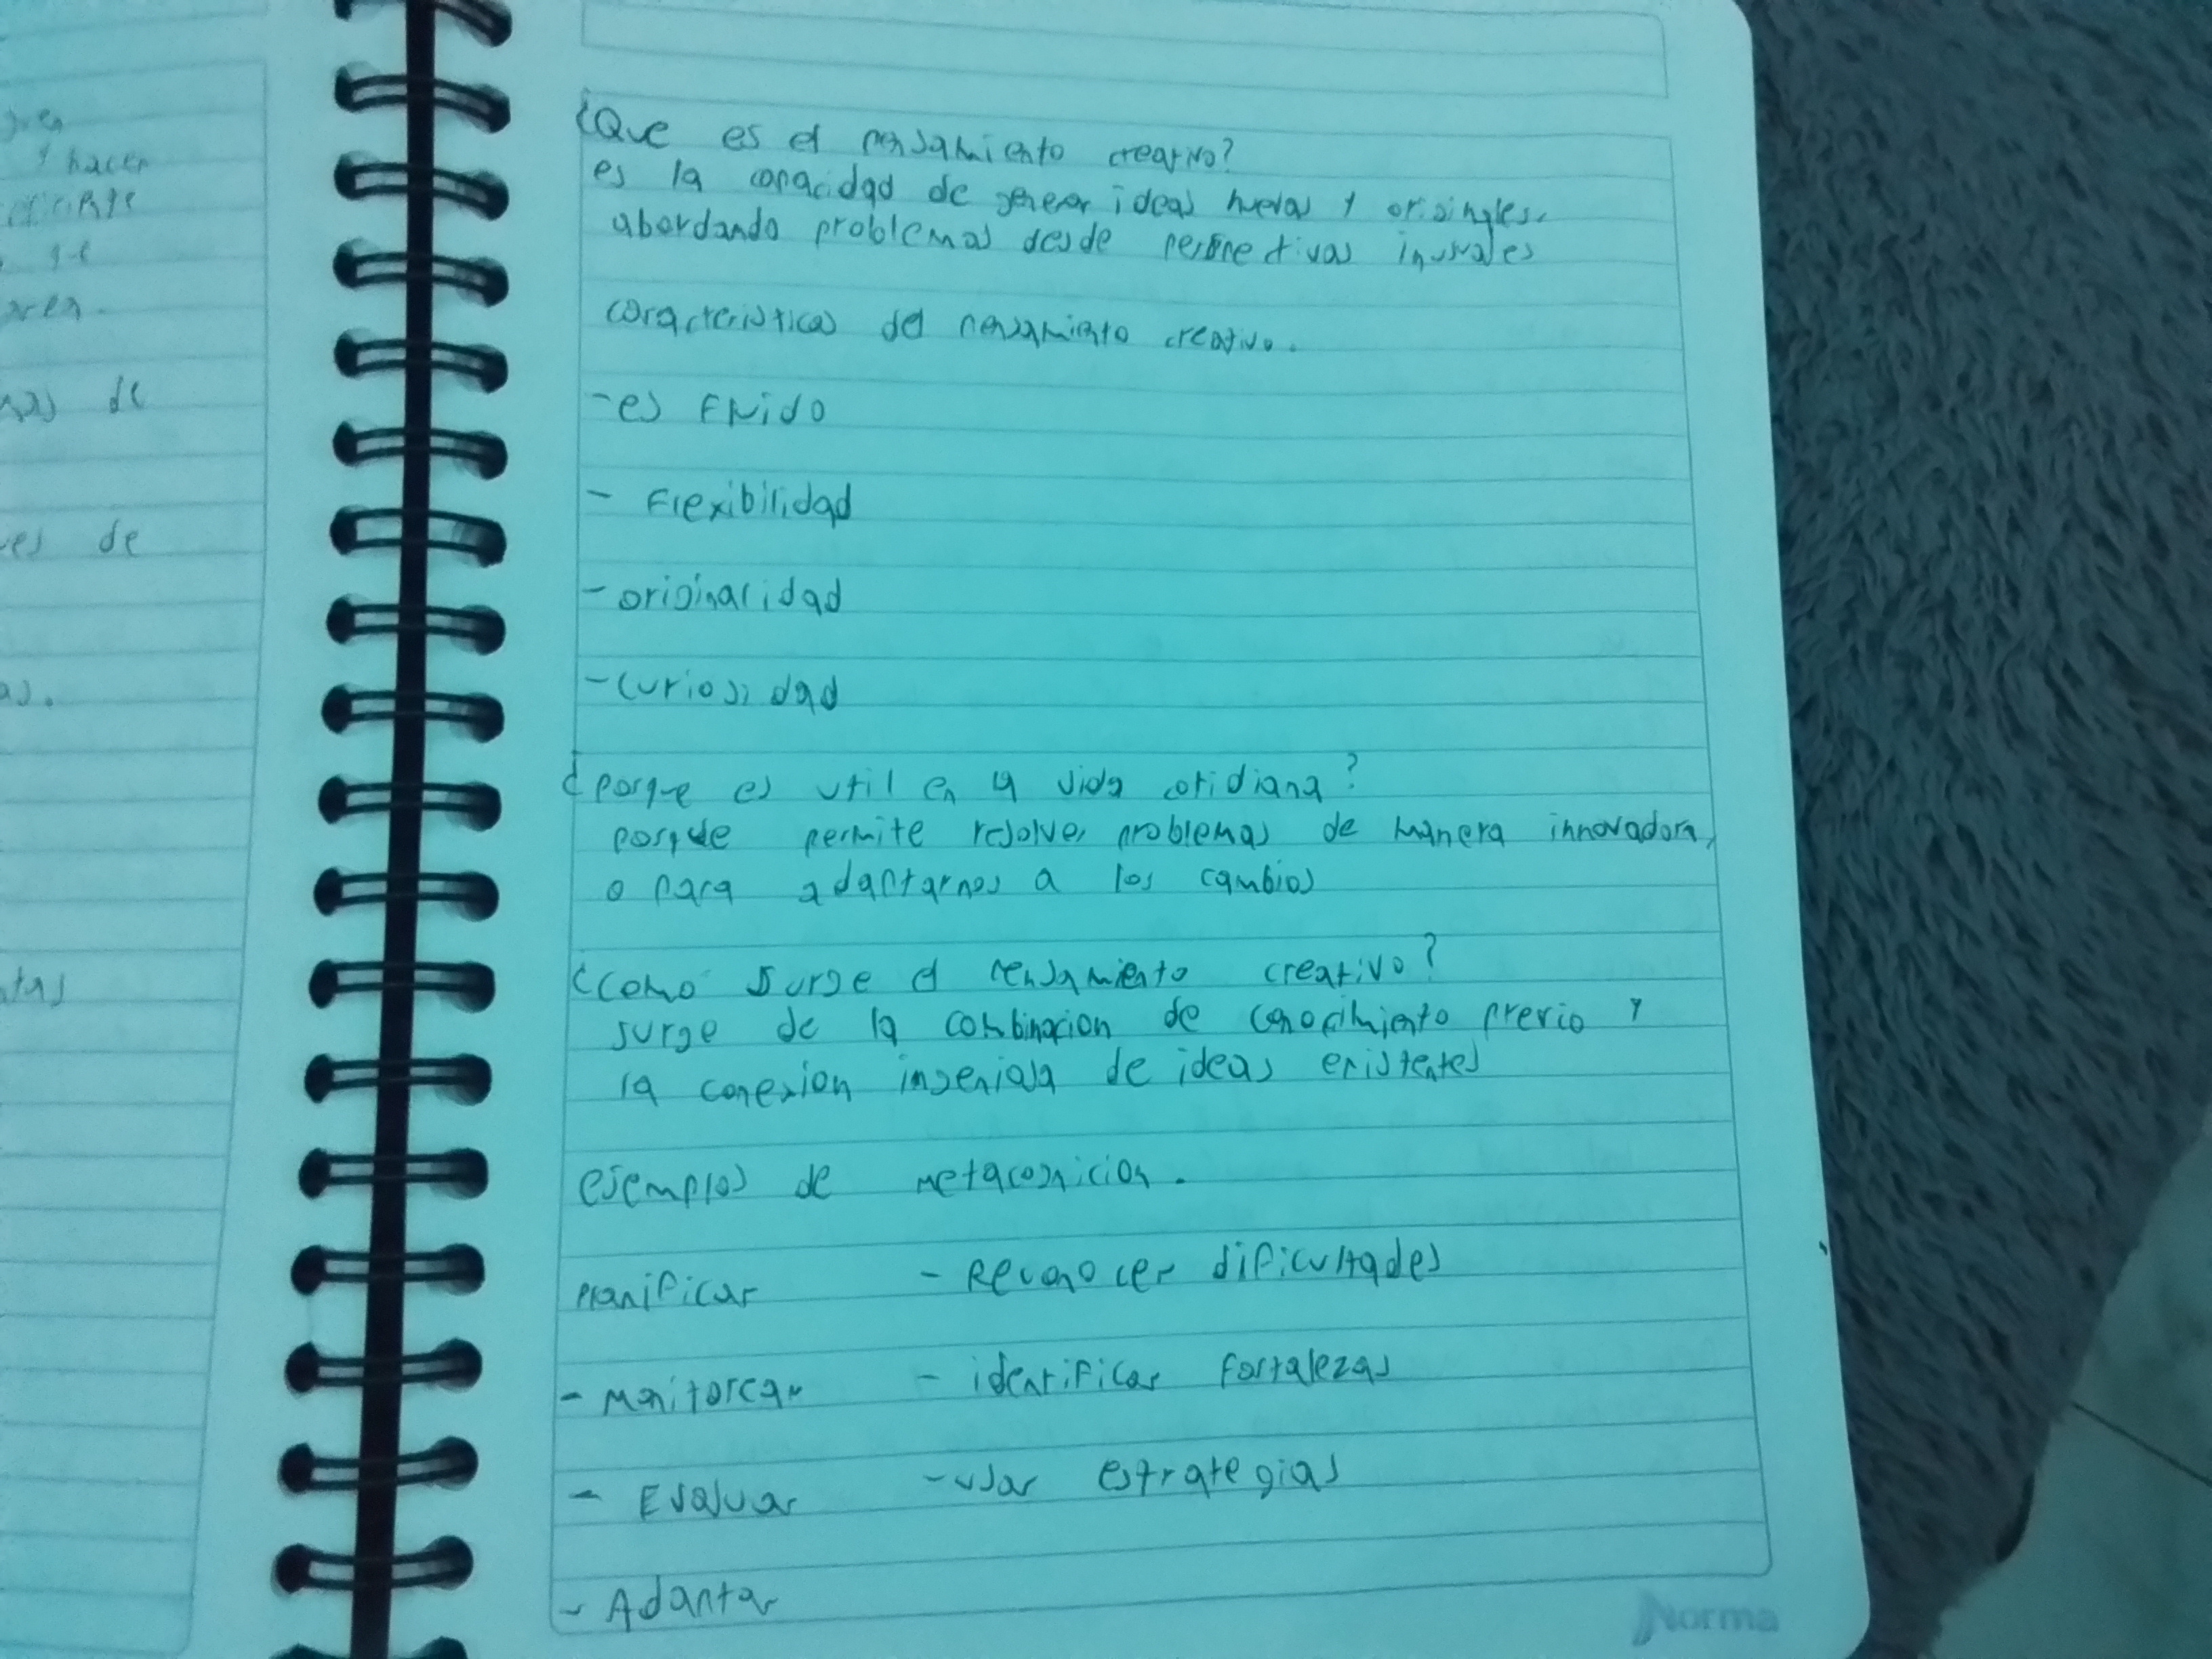 gren
y hacer
se
area.
nas de
es de
as.
ntas
¿Que es el pensamiento creativo?
es la capacidad de generar ideas nuevas y originales.
abordando problemas desde perspectivas inusuales
caracteristicas del pensamiento creativo.
- es Fluido
- Flexibilidad
- originalidad
- curiosidad
¿porque es util en la vida cotidiana?
porque permite resolver problemas de manera innovadora,
o para adaptarnos a los cambios
¿como surge el pensamiento creativo?
surge de la combinacion de conocimiento previo y
la conexion ingeniosa de ideas existentes
ejemplos de metacognicion.
planificar - Reconocer dificultades
- Monitorear - identificar fortalezas
- Evaluar - usar estrategias
- Adaptar
Norma